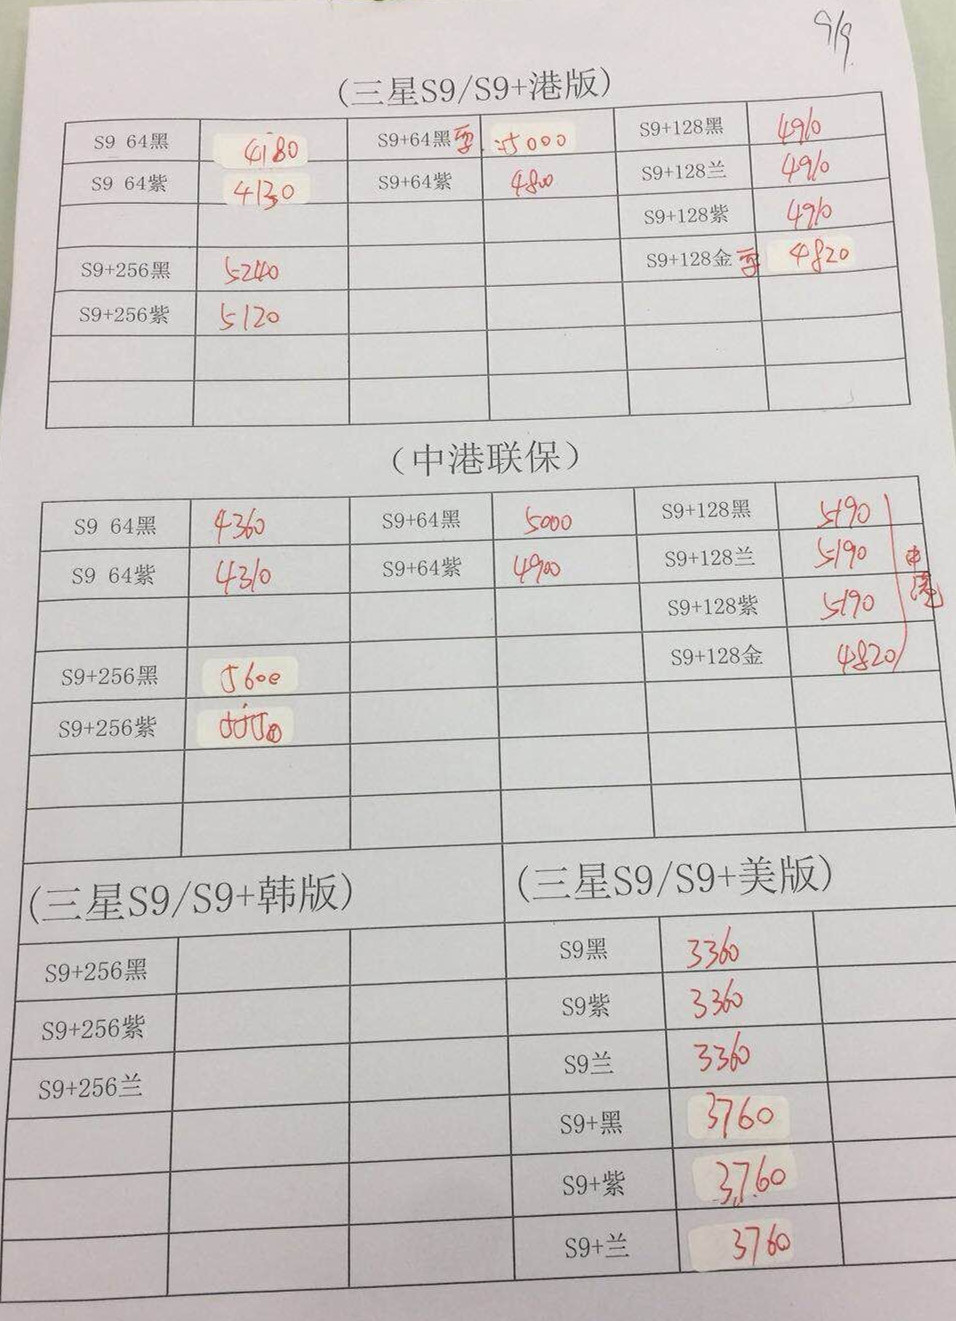 9/9
(三星S9/S9+港版)
S9 64黑 4180 S9+64黑 5000 S9+128黑 4910
S9 64紫 4130 S9+64紫 4800 S9+128兰 4910
S9+128紫 4910
S9+256黑 5240 S9+128金 4820
S9+256紫 5120
（中港联保）
S9 64黑 4360 S9+64黑 5000 S9+128黑 5190
S9 64紫 4310 S9+64紫 4900 S9+128兰 5190
中港
S9+128紫 5190
S9+256黑 5600 S9+128金 4820
S9+256紫
(三星S9/S9+韩版) (三星S9/S9+美版)
S9+256黑 S9黑 3360
S9+256紫 S9紫 3360
S9+256兰 S9兰 3360
S9+黑 3760
S9+紫 3760
S9+兰 3760